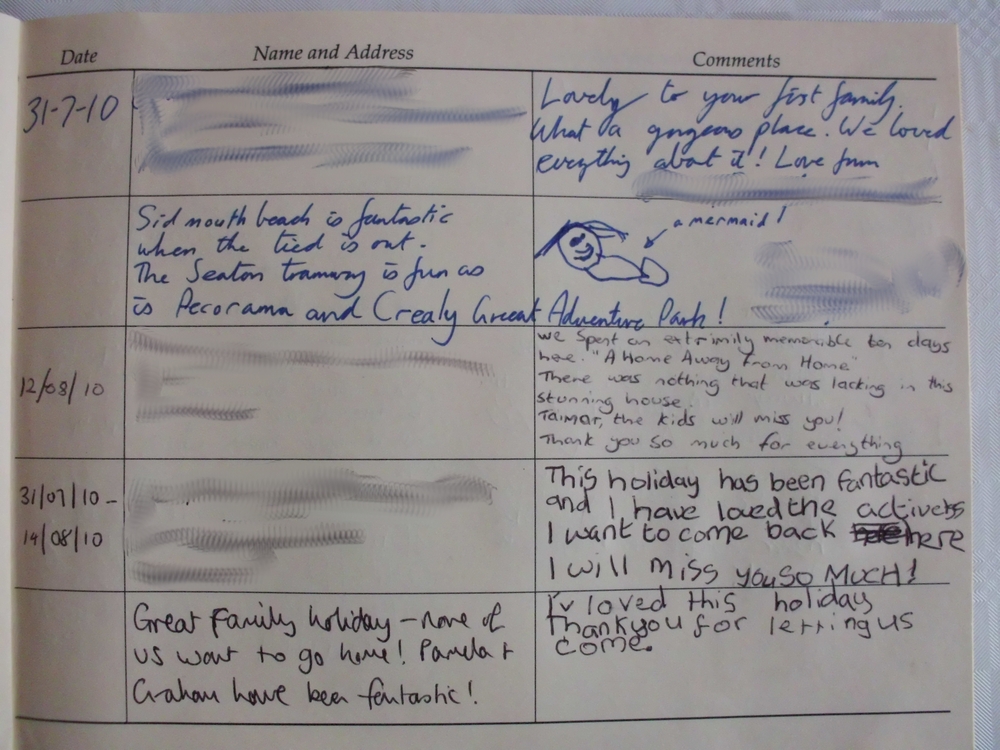 Date Name and Address Comments
31-7-10
Lovely to your first family.
What a gorgeous place. We loved
everything about it! Love from
Sidmouth beach is fantastic
when the tied is out.
The Seaton tramway is fun as
is Pecorama and Crealy Great Adventure Park!
a mermaid!
12/08/10
we spent an extrimily memorible ten days
here. "A Home Away From Home"
There was nothing that was lacking in this
stunning house.
the kids will miss you!
Thank you so much for everything
31/07/10 -
14/08/10
This holiday has been fantastic
and I have loved the activers
I want to come back here
I will miss you SO MUCH!
Great Family holiday - none of
us want to go home! Pamela +
Graham have been fantastic!
I'v loved this holiday
Thankyou for letting us
come.